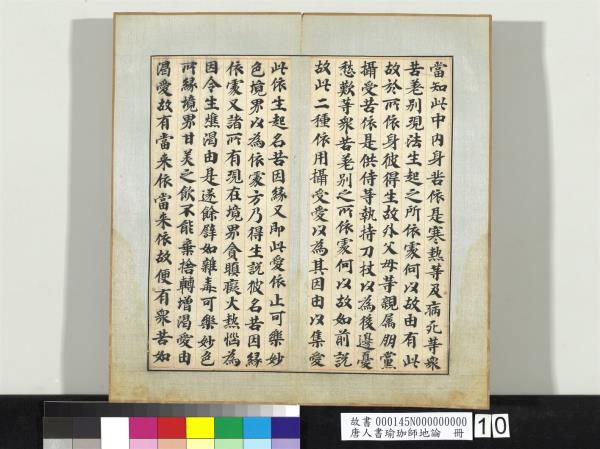 當知此中內身苦依是寒熱等及病死等眾
苦差別現法生起之所依處何以故由有此
故於所依身彼得生故外父母等親屬朋黨
攝受苦依是供侍等執持刀杖以為後邊憂
愁歎等眾苦差別之所依處何以故如前說
故此二種依用攝受愛以為其因由以集愛
此依生起名苦因緣又即此愛依止可樂妙
色境界以為依處方乃得生說彼名苦因緣
依處又諸所有現在境界貪瞋癡火熱惱為
因令生燋渴由是遂餘譬如雜毒可樂妙色
所緣境界甘美之飲不能棄捨轉增渴愛由
渴愛故有當來依當來依故便有眾苦如
故書 000145N000000000
唐人書瑜珈師地論 冊
10